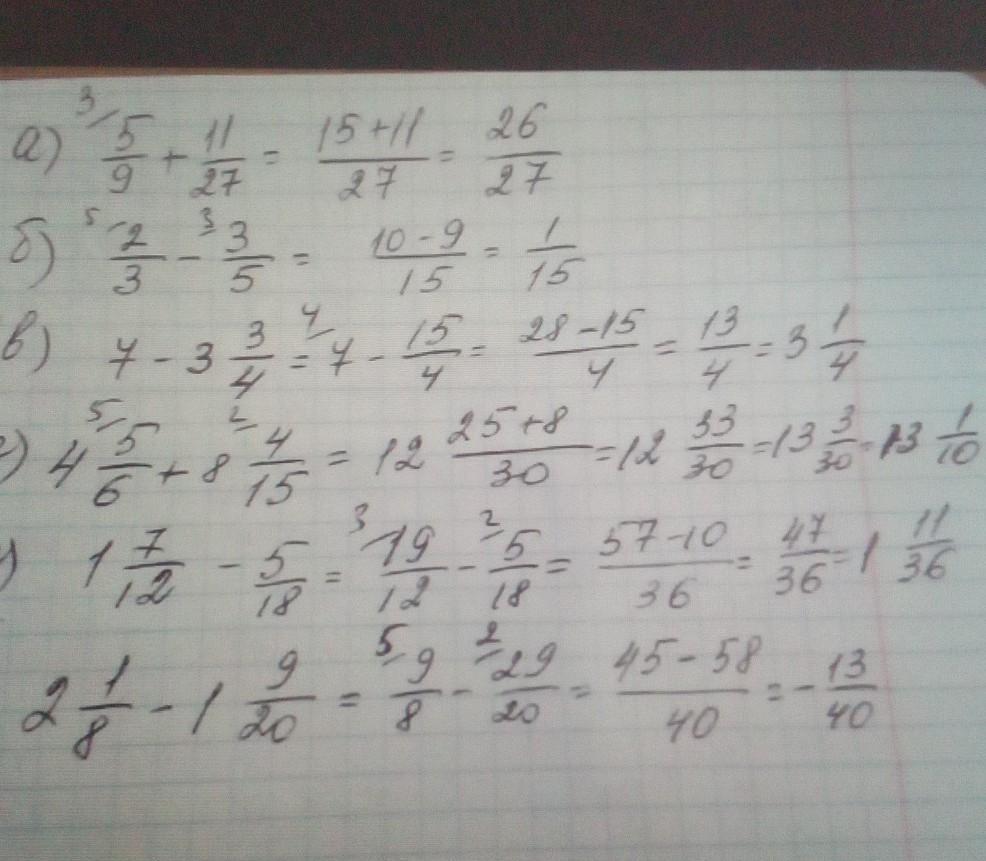 а) ³⁄ 5/9 + 11/27 = (15+11)/27 = 26/27
б) ⁵⁄ 2/3 - ³⁄ 3/5 = (10-9)/15 = 1/15
в) 7 - 3 3/4 = ⁴⁄ 7 - 15/4 = (28-15)/4 = 13/4 = 3 1/4
г) 4 ⁵⁄ 5/6 + 8 ²⁄ 4/15 = 12 (25+8)/30 = 12 33/30 = 13 3/30 = 13 1/10
) 1 7/12 - 5/18 = ³⁄ 19/12 - ²⁄ 5/18 = (57-10)/36 = 47/36 = 1 11/36
2 1/8 - 1 9/20 = ⁵⁄ 9/8 - ²⁄ 29/20 = (45-58)/40 = - 13/40